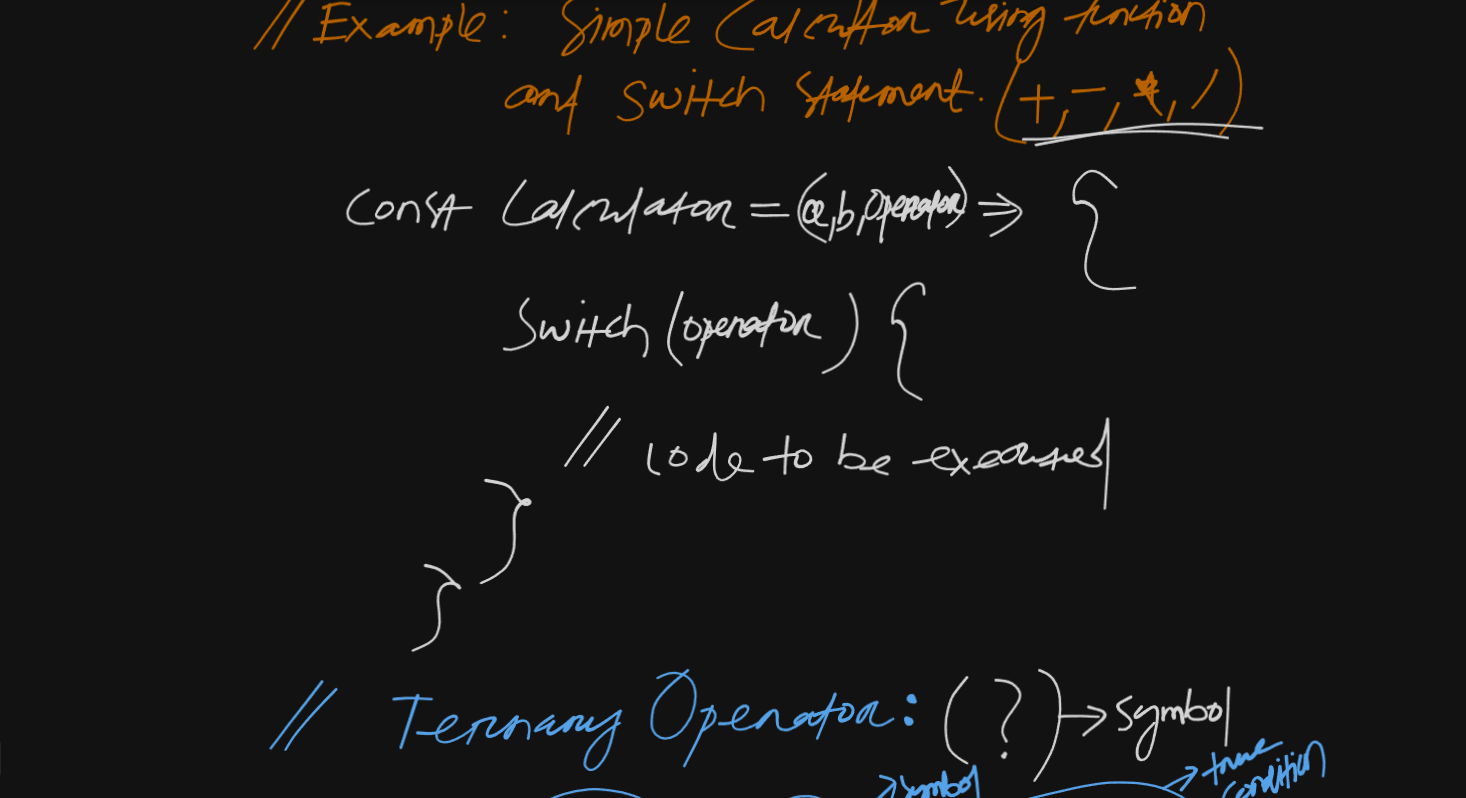 // Example: Simple Calculator using function
and Switch Statement. (+, -, *, /)
Const Calculator = (a,b,operator) => {
Switch (operator) {
// code to be executed
}
}
// Ternary Operator: (?) → symbol
symbol → true condition